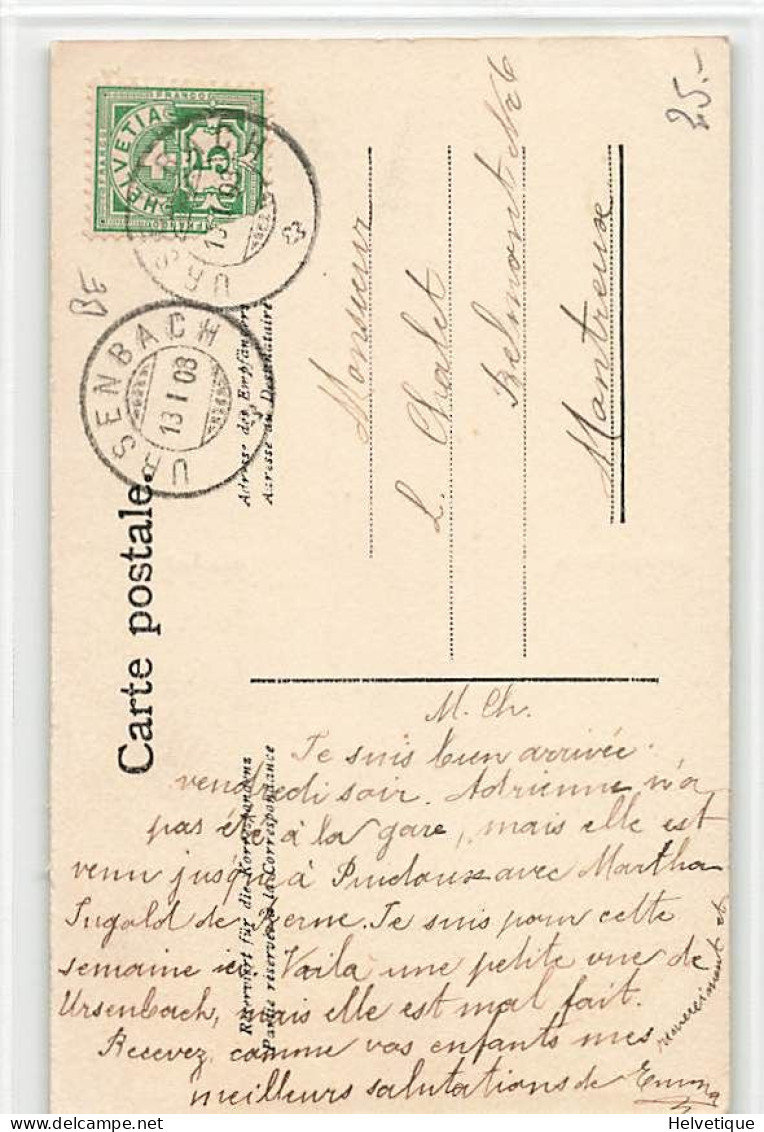 25.-
FRANCO
HELVETIA
5
URSENBACH
13 I 08
BE
URSENBACH
13 I 08
Carte postale.
Adresse des Empfängers
Adresse du Destinataire
Monsieur
L. Chalet
Belmont No 6
Montreux
Reserviert für die Korrespondenz
Partie réservée à la Correspondance
M. Ch.
Je suis bien arrivée
vendredi soir. Adrienne n'a
pas été à la gare, mais elle est
venu jusqu'à Puidoux avec Martha
Ingold de Berne. Je suis pour cette
semaine ici. Voilà une petite vue de
Ursenbach, mais elle est mal fait.
Recevez comme vos enfants mes
remerciment et
meilleurs salutations de Emma
delcampe.net
Helvetique